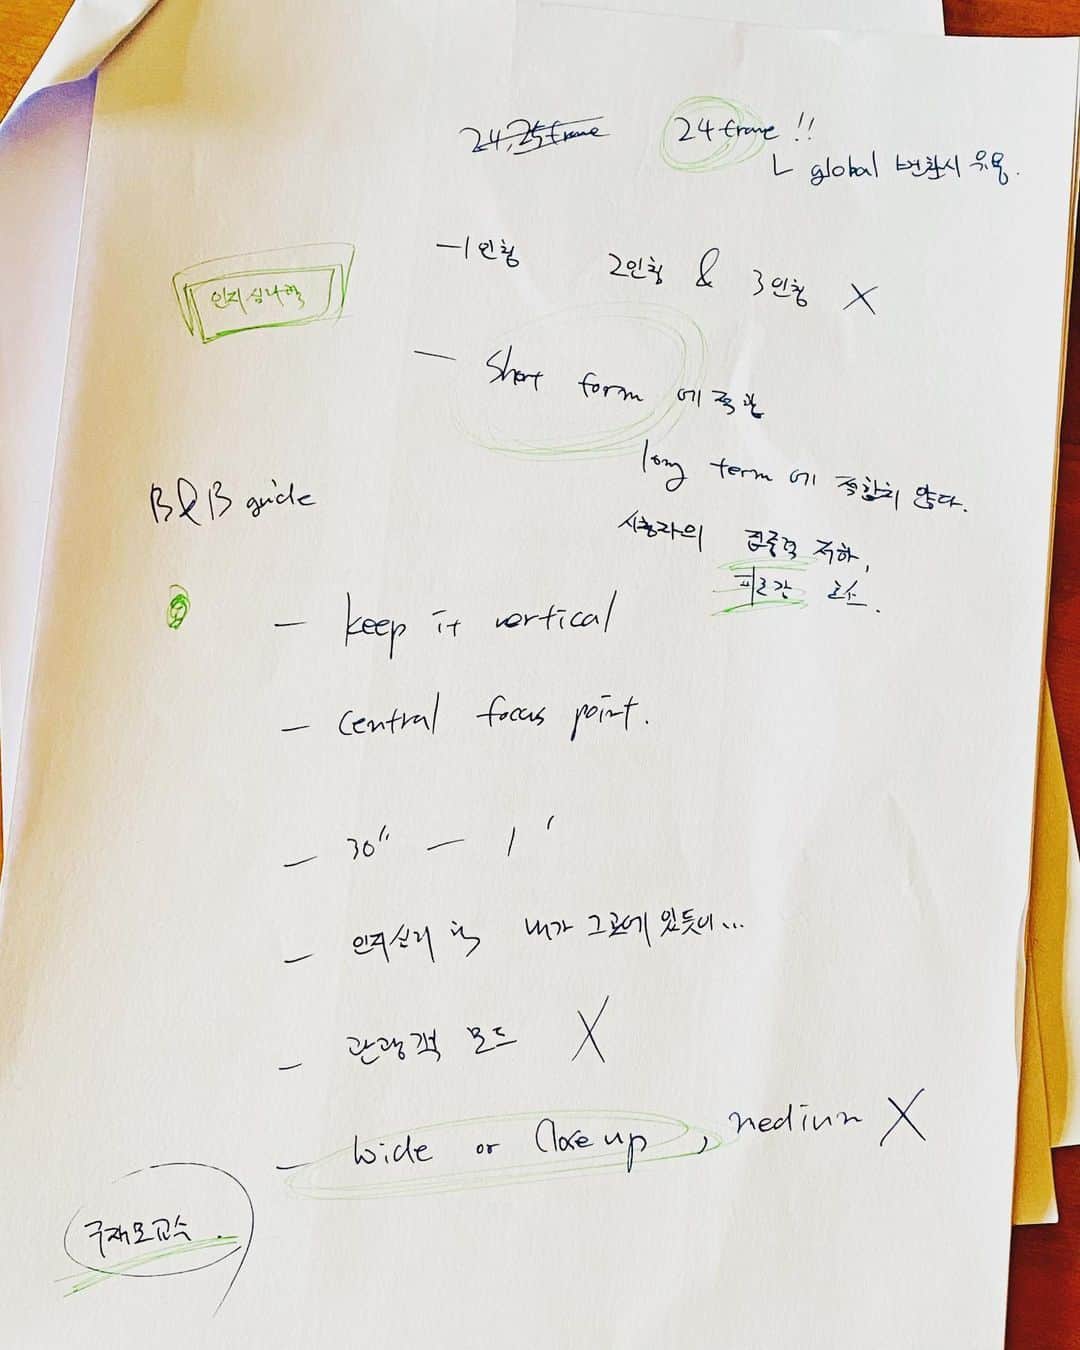 24, 25 frame 24 frame !!
└ global 변환시 유용.
- 1인칭 2인칭 & 3인칭 X
인지심리학
- Short form 에 적합
long term 에 적합치 않다.
시청자의 집중력 저하,
피로감 호소.
B&B guide
- keep it vertical
- central focus point.
- 30" - 1'
- 인지심리학 내가 그곳에 있듯이...
- 관광객 모드 X
- wide or Close up, medium X
구재모교수.